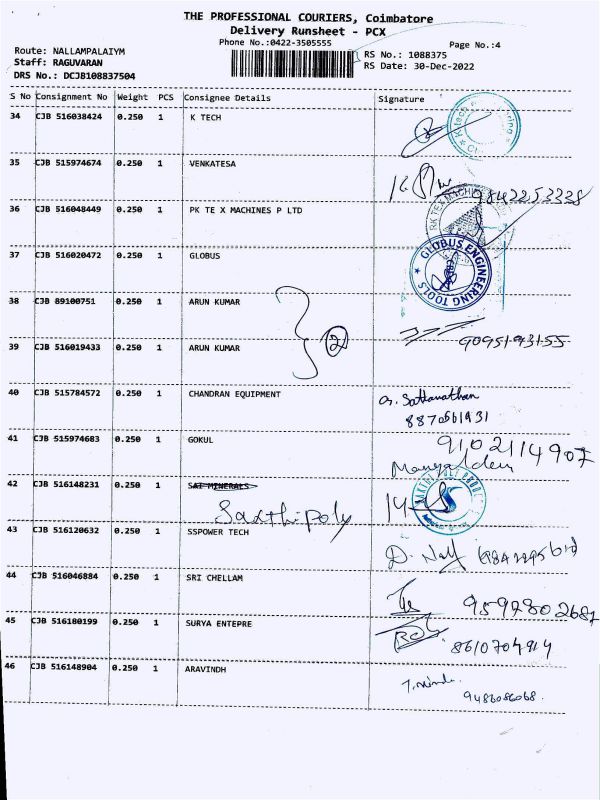 THE PROFESSIONAL COURIERS, Coimbatore
Delivery Runsheet - PCX
Phone No.:0422-3505555
Page No.:4
Route: NALLAMPALAIYM
RS No.: 1088375
Staff: RAGUVARAN
RS Date: 30-Dec-2022
DRS No.: DCJB108837504
S No Consignment No Weight PCS Consignee Details Signature
34 CJB 516038424 0.250 1 K TECH
35 CJB 515974674 0.250 1 VENKATESA
9842253338
36 CJB 516048449 0.250 1 PK TE X MACHINES P LTD
37 CJB 516020472 0.250 1 GLOBUS
GLOBUS ENGINEERING TOOLS
38 CJB 89100751 0.250 1 ARUN KUMAR
2
39 CJB 516019433 0.250 1 ARUN KUMAR
40 CJB 515784572 0.250 1 CHANDRAN EQUIPMENT
8870561931
41 CJB 515974683 0.250 1 GOKUL
9102114907
42 CJB 516148231 0.250 1 SAI MINERALS
Sakthi poly
43 CJB 516120632 0.250 1 SSPOWER TECH
44 CJB 516046884 0.250 1 SRI CHELLAM
9597802687
45 CJB 516180199 0.250 1 SURYA ENTEPRE
8610704914
46 CJB 516148904 0.250 1 ARAVINDH
9486086068